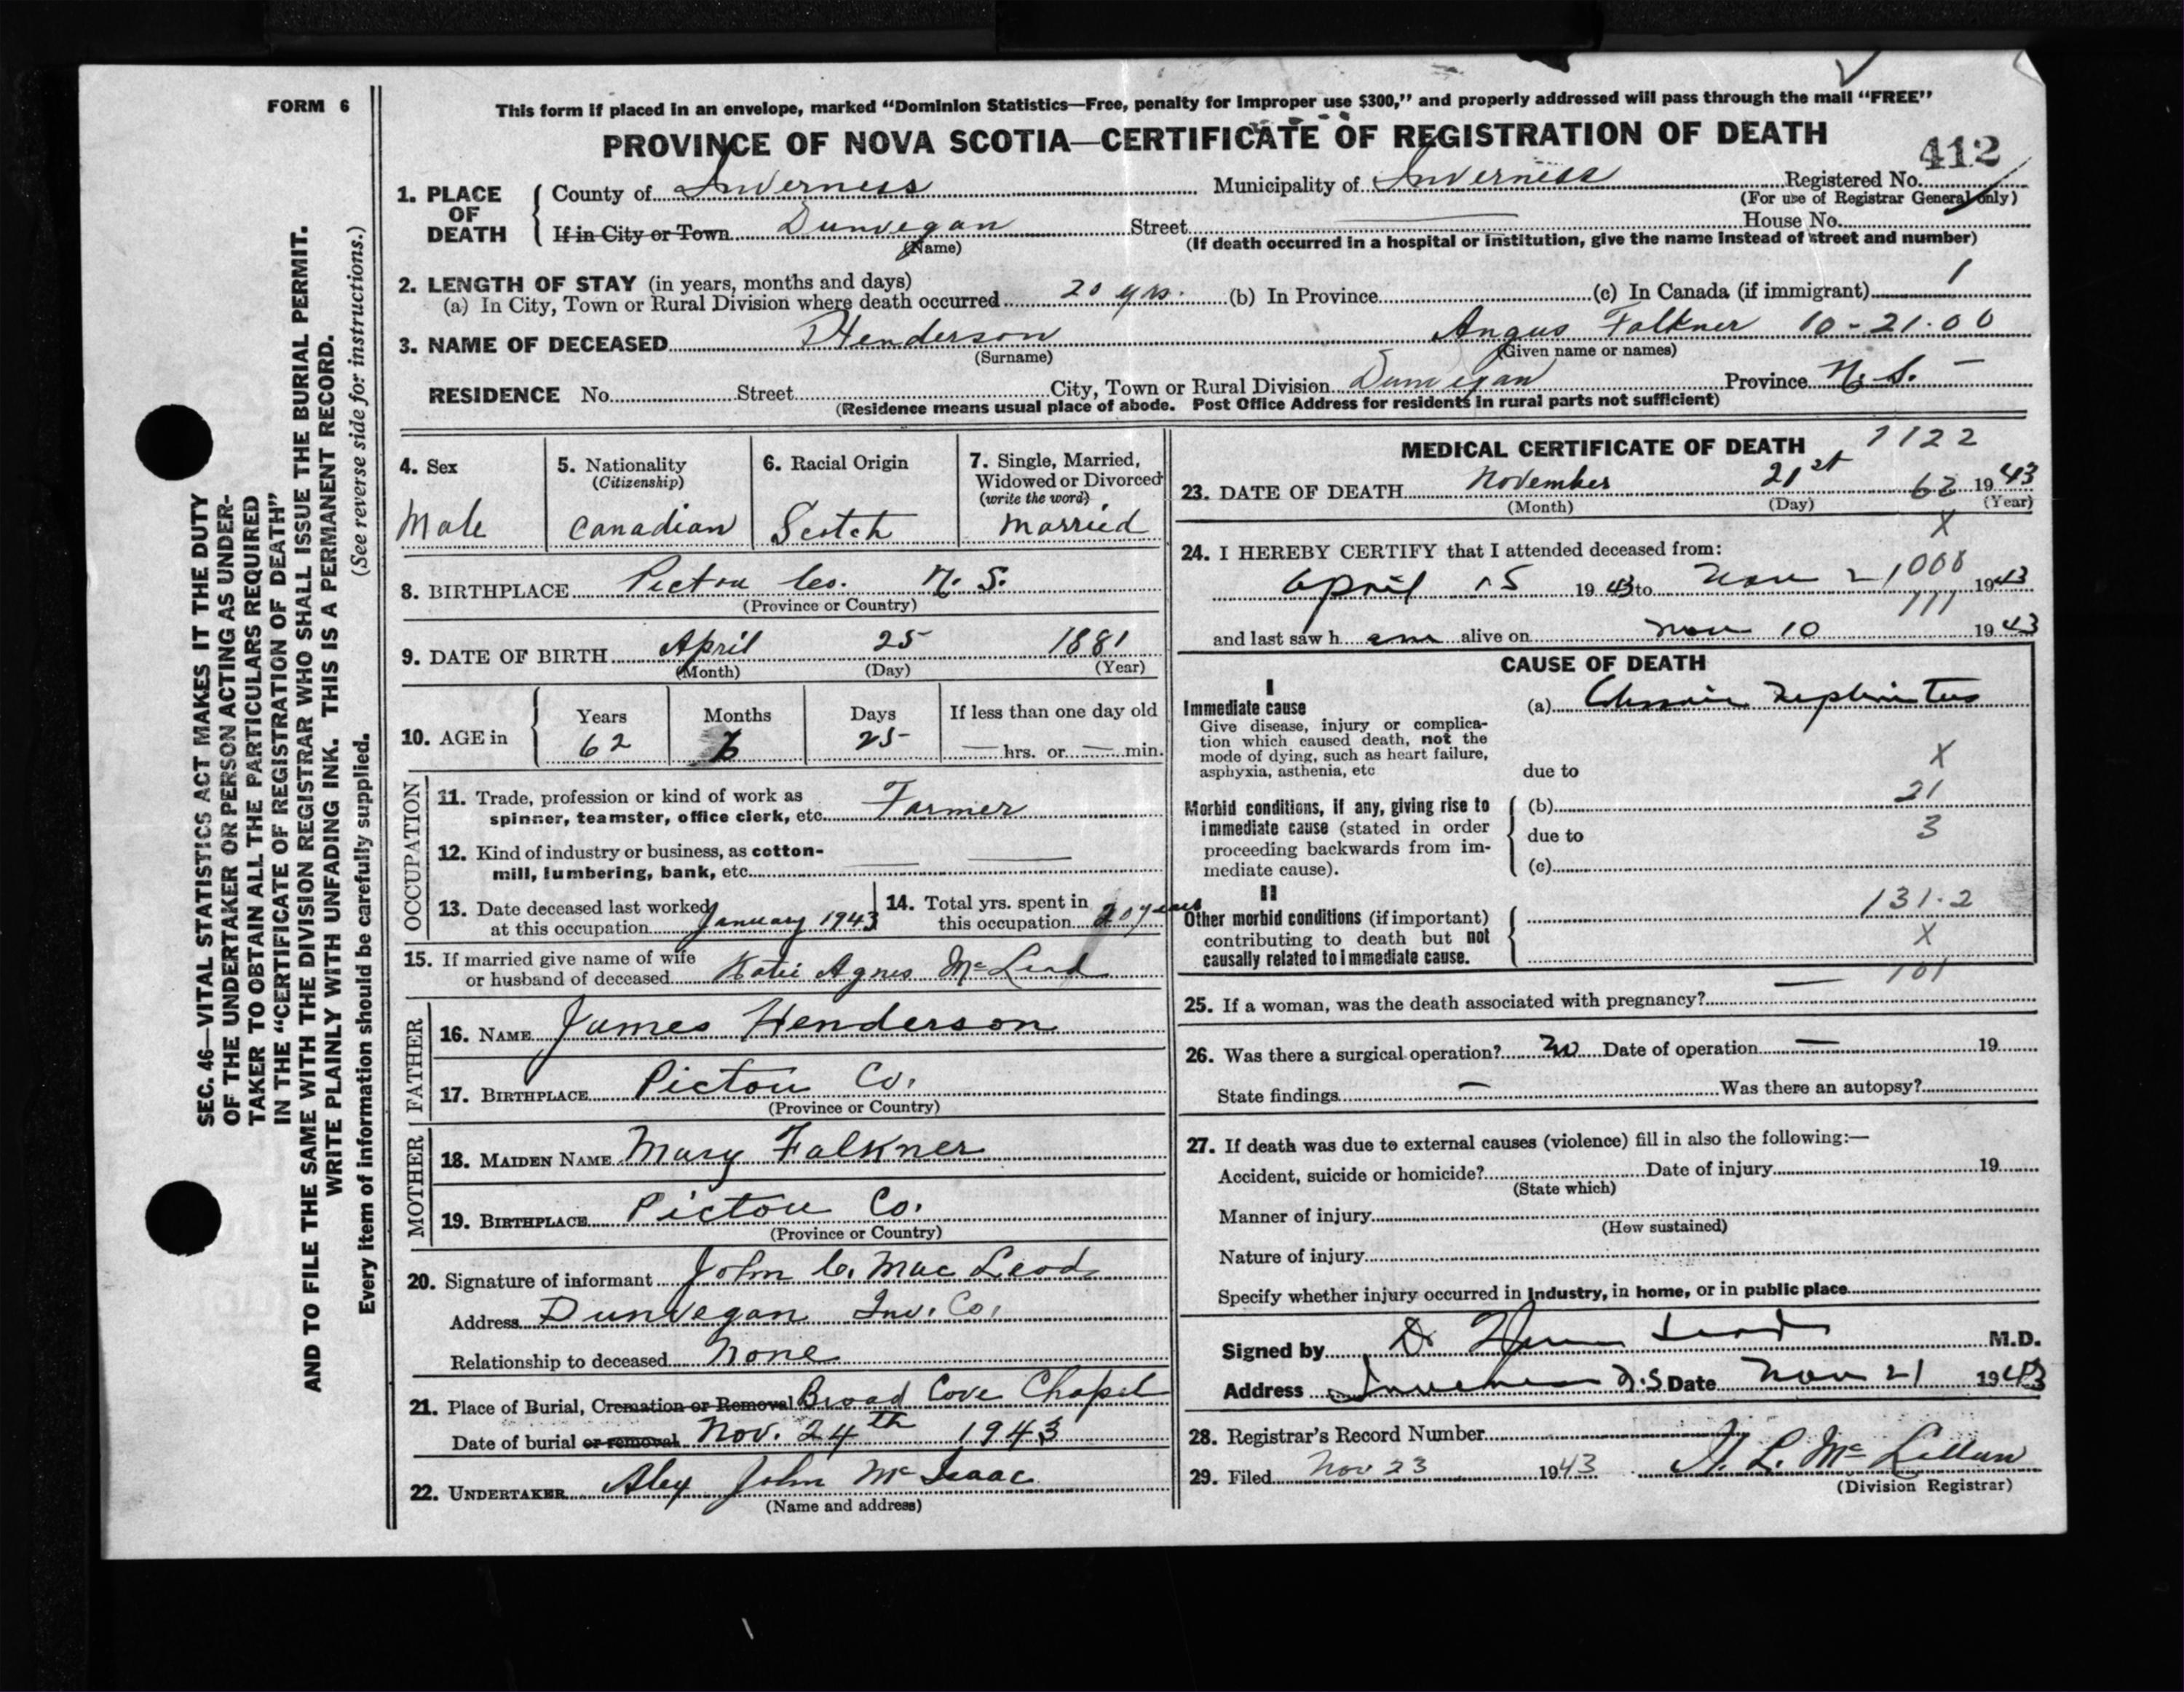 FORM 6
This form if placed in an envelope, marked “Dominion Statistics—Free, penalty for improper use $300,” and properly addressed will pass through the mail “FREE”
PROVINCE OF NOVA SCOTIA—CERTIFICATE OF REGISTRATION OF DEATH
412
1. PLACE OF DEATH
County of Inverness Municipality of Inverness Registered No.
(For use of Registrar General only)
If in City or Town Dunvegan Street House No.
(Name) (If death occurred in a hospital or institution, give the name instead of street and number)
2. LENGTH OF STAY (in years, months and days)
(a) In City, Town or Rural Division where death occurred 20 yrs. (b) In Province (c) In Canada (if immigrant) 1
3. NAME OF DECEASED Henderson Angus Falkner 10-21-00
(Surname) (Given name or names)
RESIDENCE No. Street City, Town or Rural Division Dunvegan Province N.S. —
(Residence means usual place of abode. Post Office Address for residents in rural parts not sufficient)
4. Sex Male
5. Nationality (Citizenship) Canadian
6. Racial Origin Scotch
7. Single, Married, Widowed or Divorced (write the word) Married
8. BIRTHPLACE Pictou Co. N.S.
(Province or Country)
9. DATE OF BIRTH April 25 1881
(Month) (Day) (Year)
10. AGE in Years Months Days If less than one day old
62 25 — hrs. or — min.
OCCUPATION
11. Trade, profession or kind of work as
spinner, teamster, office clerk, etc. Farmer
12. Kind of industry or business, as cotton-
mill, lumbering, bank, etc.
13. Date deceased last worked
at this occupation January 1943
14. Total yrs. spent in
this occupation 20 years
15. If married give name of wife
or husband of deceased Katie Agnes McLeod
FATHER
16. NAME James Henderson
17. BIRTHPLACE Pictou Co.
(Province or Country)
MOTHER
18. MAIDEN NAME Mary Falkner
19. BIRTHPLACE Pictou Co.
(Province or Country)
20. Signature of informant John C. MacLeod
Address Dunvegan Inv. Co.
Relationship to deceased None
21. Place of Burial, Cremation or Removal Broad Cove Chapel
Date of burial or removal Nov. 24th 1943
22. UNDERTAKER Alex John McIsaac
(Name and address)
MEDICAL CERTIFICATE OF DEATH 1122
23. DATE OF DEATH November 21st 62 1943
(Month) (Day) (Year)
X
24. I HEREBY CERTIFY that I attended deceased from:
April 15 1943 to Nov 21 1943
000
111
and last saw h alive on Nov 10 1943
CAUSE OF DEATH
I
Immediate cause
Give disease, injury or complica-
tion which caused death, not the
mode of dying, such as heart failure,
asphyxia, asthenia, etc
(a) Chronic Nephritis
due to X
Morbid conditions, if any, giving rise to
immediate cause (stated in order
proceeding backwards from im-
mediate cause).
(b) 21
due to 3
(c)
II
Other morbid conditions (if important)
contributing to death but not
causally related to immediate cause.
131.2
X
101
25. If a woman, was the death associated with pregnancy? —
26. Was there a surgical operation? no Date of operation — 19
State findings — Was there an autopsy?
27. If death was due to external causes (violence) fill in also the following:—
Accident, suicide or homicide? Date of injury 19
(State which)
Manner of injury
(How sustained)
Nature of injury
Specify whether injury occurred in Industry, in home, or in public place
Signed by Dr M.D.
Address Inverness N.S Date Nov 21 1943
28. Registrar's Record Number
29. Filed Nov 23 1943 L. McLellan
(Division Registrar)
SEC. 46—VITAL STATISTICS ACT MAKES IT THE DUTY
OF THE UNDERTAKER OR PERSON ACTING AS UNDER-
TAKER TO OBTAIN ALL THE PARTICULARS REQUIRED
IN THE “CERTIFICATE OF REGISTRATION OF DEATH”
AND TO FILE THE SAME WITH THE DIVISION REGISTRAR WHO SHALL ISSUE THE BURIAL PERMIT.
WRITE PLAINLY WITH UNFADING INK. THIS IS A PERMANENT RECORD.
Every item of information should be carefully supplied. (See reverse side for instructions.)